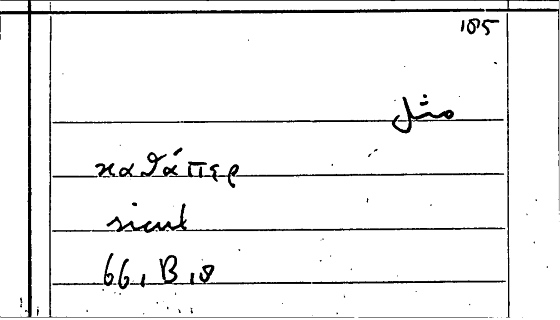 105
مثل
καθάπερ
sicut
66, B, 8